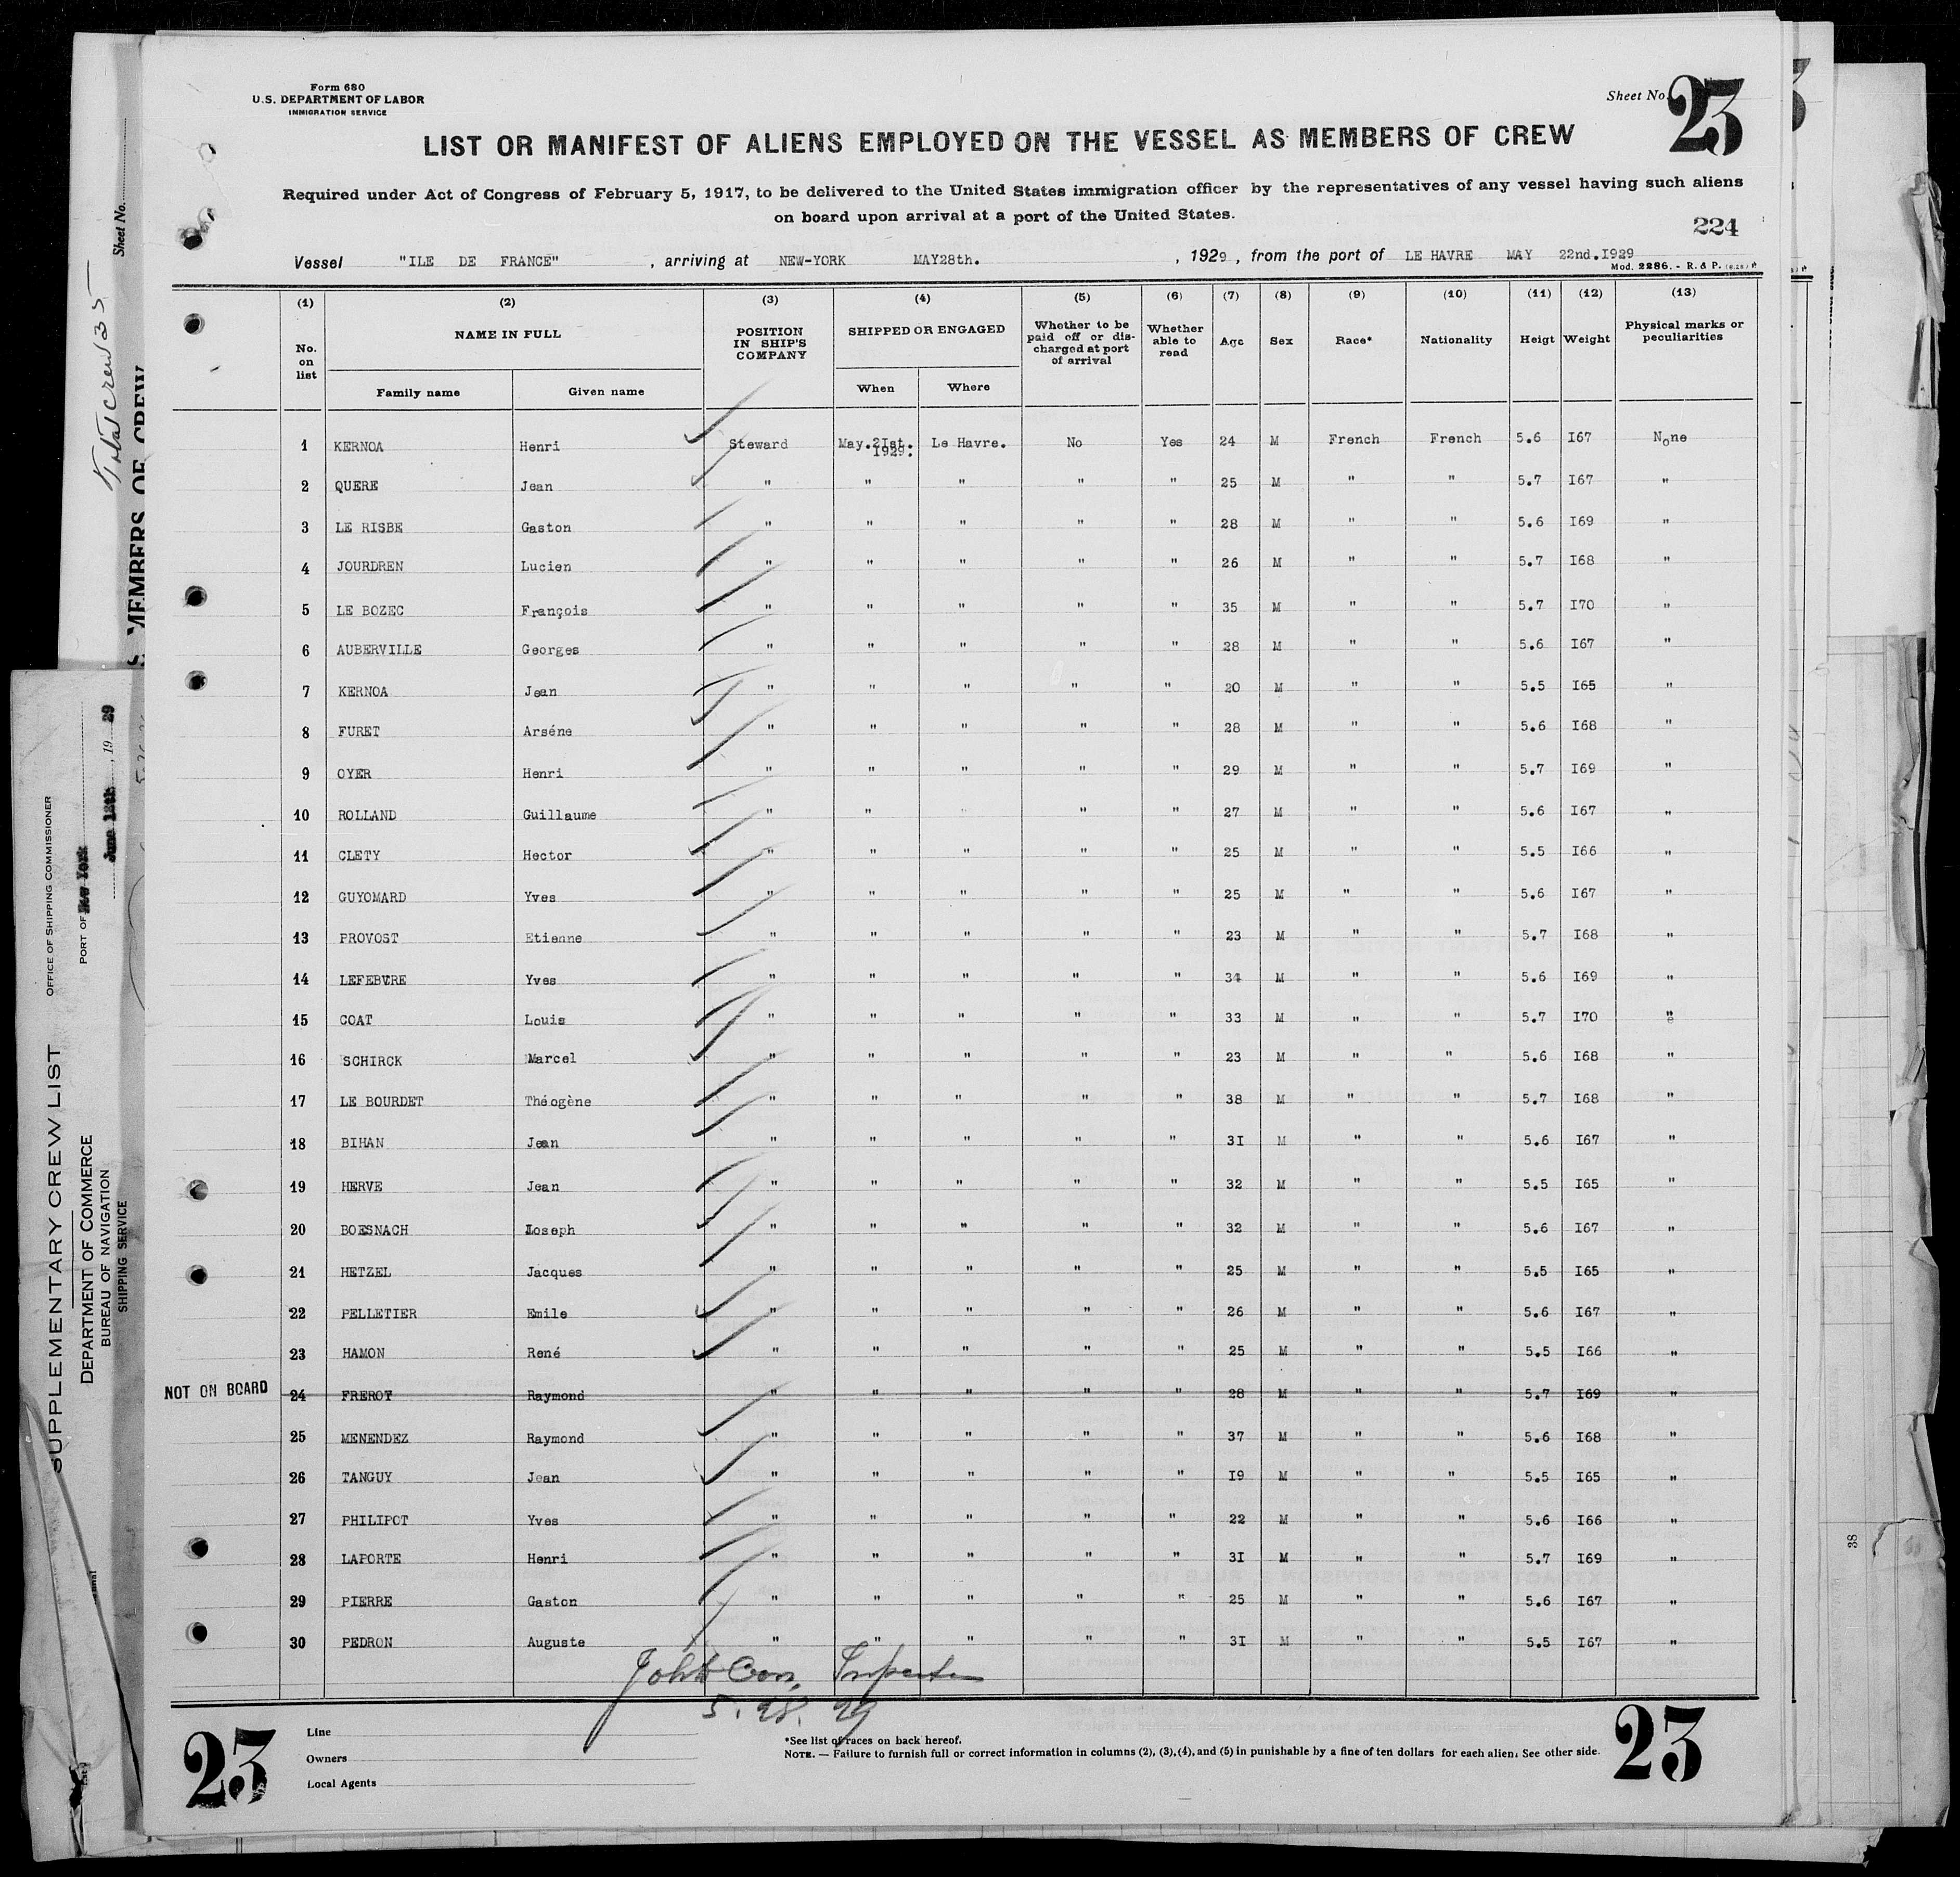 Form 680
U.S. DEPARTMENT OF LABOR
IMMIGRATION SERVICE
Sheet No. 23
LIST OR MANIFEST OF ALIENS EMPLOYED ON THE VESSEL AS MEMBERS OF CREW
Required under Act of Congress of February 5, 1917, to be delivered to the United States immigration officer by the representatives of any vessel having such aliens
on board upon arrival at a port of the United States.
224
Vessel "ILE DE FRANCE" , arriving at NEW-YORK MAY28th. , 1929 , from the port of LE HAVRE MAY 22nd.I929
Mod. 2286. - R. & P.
(1) (2) (3) (4) (5) (6) (7) (8) (9) (10) (11) (12) (13)
No. on list NAME IN FULL Family name Given name POSITION IN SHIP'S COMPANY SHIPPED OR ENGAGED When Where Whether to be paid off or discharged at port of arrival Whether able to read Age Sex Race* Nationality Heigt Weight Physical marks or peculiarities
1 KERNOA Henri Steward May.2Ist. I929. Le Havre. No Yes 24 M French French 5.6 I67 None
2 QUERE Jean " " " " " 25 M " " 5.7 I67 "
3 LE RISBE Gaston " " " " " 28 M " " 5.6 I69 "
4 JOURDREN Lucien " " " " " 26 M " " 5.7 I68 "
5 LE BOZEC François " " " " " 35 M " " 5.7 I70 "
6 AUBERVILLE Georges " " " " " 28 M " " 5.6 I67 "
7 KERNOA Jean " " " " " 20 M " " 5.5 I65 "
8 FURET Arséne " " " " " 28 M " " 5.6 I68 "
9 OYER Henri " " " " " 29 M " " 5.7 I69 "
10 ROLLAND Guillaume " " " " " 27 M " " 5.6 I67 "
11 CLETY Hector " " " " " 25 M " " 5.5 I66 "
12 GUYOMARD Yves " " " " " 25 M " " 5.6 I67 "
13 PROVOST Etienne " " " " " 23 M " " 5.7 I68 "
14 LEFEBVRE Yves " " " " " 34 M " " 5.6 I69 "
15 COAT Louis " " " " " 33 M " " 5.7 I70 "
16 SCHIRCK Marcel " " " " " 23 M " " 5.6 I68 "
17 LE BOURDET Théogène " " " " " 38 M " " 5.7 I68 "
18 BIHAN Jean " " " " " 3I M " " 5.6 I67 "
19 HERVE Jean " " " " " 32 M " " 5.5 I65 "
20 BOESNACH Joseph " " " " " 32 M " " 5.6 I67 "
21 HETZEL Jacques " " " " " 25 M " " 5.5 I65 "
22 PELLETIER Emile " " " " " 26 M " " 5.6 I67 "
23 HAMON René " " " " " 25 M " " 5.5 I66 "
NOT ON BOARD 24 FREROT Raymond " " " " " 28 M " " 5.7 I69 "
25 MENENDEZ Raymond " " " " " 37 M " " 5.6 I68 "
26 TANGUY Jean " " " " " I9 M " " 5.5 I65 "
27 PHILIPOT Yves " " " " " 22 M " " 5.6 I66 "
28 LAPORTE Henri " " " " " 3I M " " 5.7 I69 "
29 PIERRE Gaston " " " " " 25 M " " 5.6 I67 "
30 PEDRON Auguste " " " " " 3I M " " 5.5 I67 "
John Inspector
5. 28. 29
23
Line
Owners
Local Agents
*See list of races on back hereof.
NOTE. — Failure to furnish full or correct information in columns (2), (3), (4), and (5) in punishable by a fine of ten dollars for each alien. See other side.
23
Sheet No.
Total crew 35
MEMBERS OF CREW
SUPPLEMENTARY CREW LIST
OFFICE OF SHIPPING COMMISSIONER
DEPARTMENT OF COMMERCE
BUREAU OF NAVIGATION
SHIPPING SERVICE
PORT OF New York
June 12th , 19 29
38